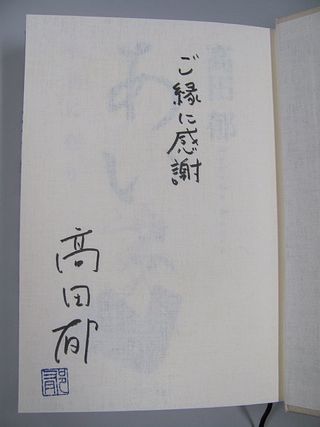 ご縁に感謝
高田郁
郁